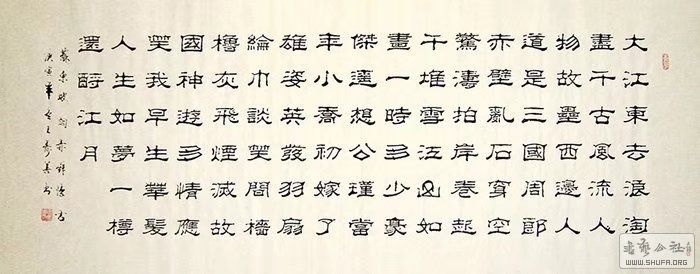 大江東去浪淘
盡千古風流人
物故壘西邊人
道是三國周郎
赤壁亂石穿空
驚濤拍岸卷起
千堆雪江山如
畫一時多少豪
傑遙想公瑾當
年小喬初嫁了
雄姿英發羽扇
綸巾談笑間檣
櫓灰飛煙滅故
國神遊多情應
笑我早生華髮
人生如夢一樽
還酹江月
蘇東坡詞赤壁懷古
庚寅年
書法公社
WWW.SHUFA.ORG